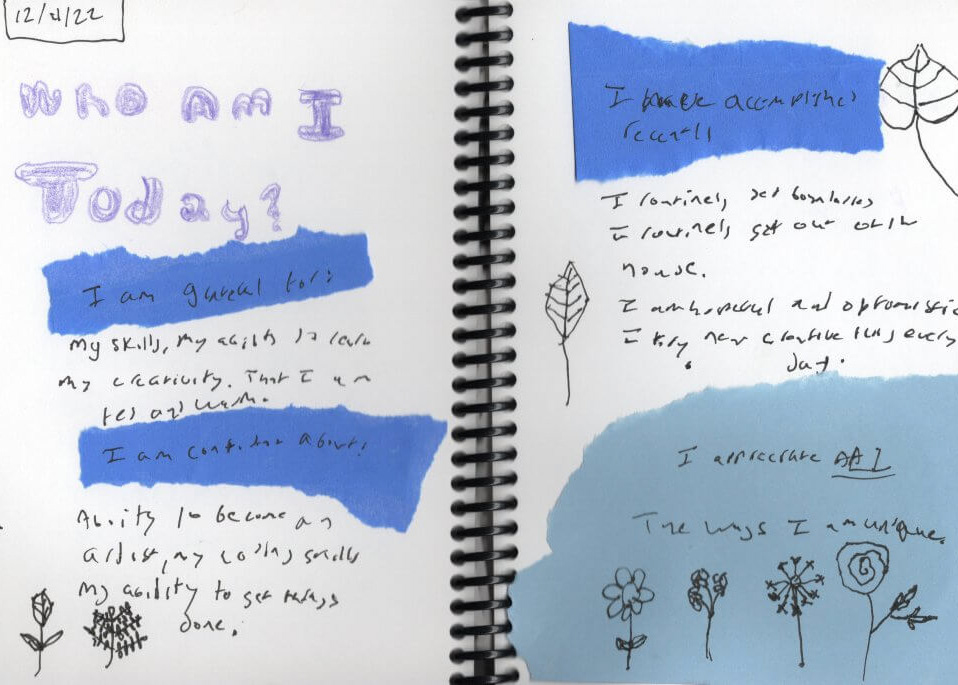 12/4/22
Who Am I
Today?
I am grateful for:
My skills, my ability to learn
my creativity. That I am
fed and warm.
I am confident about:
Ability to become an
artist, my coding skills
My ability to get things
done.
I have accomplished
recently
I routinely set boundaries
I routinely get out of the
house.
I am hopeful and optomistic
I try new creative things every
day.
I appreciate ALL
The ways I am unique.